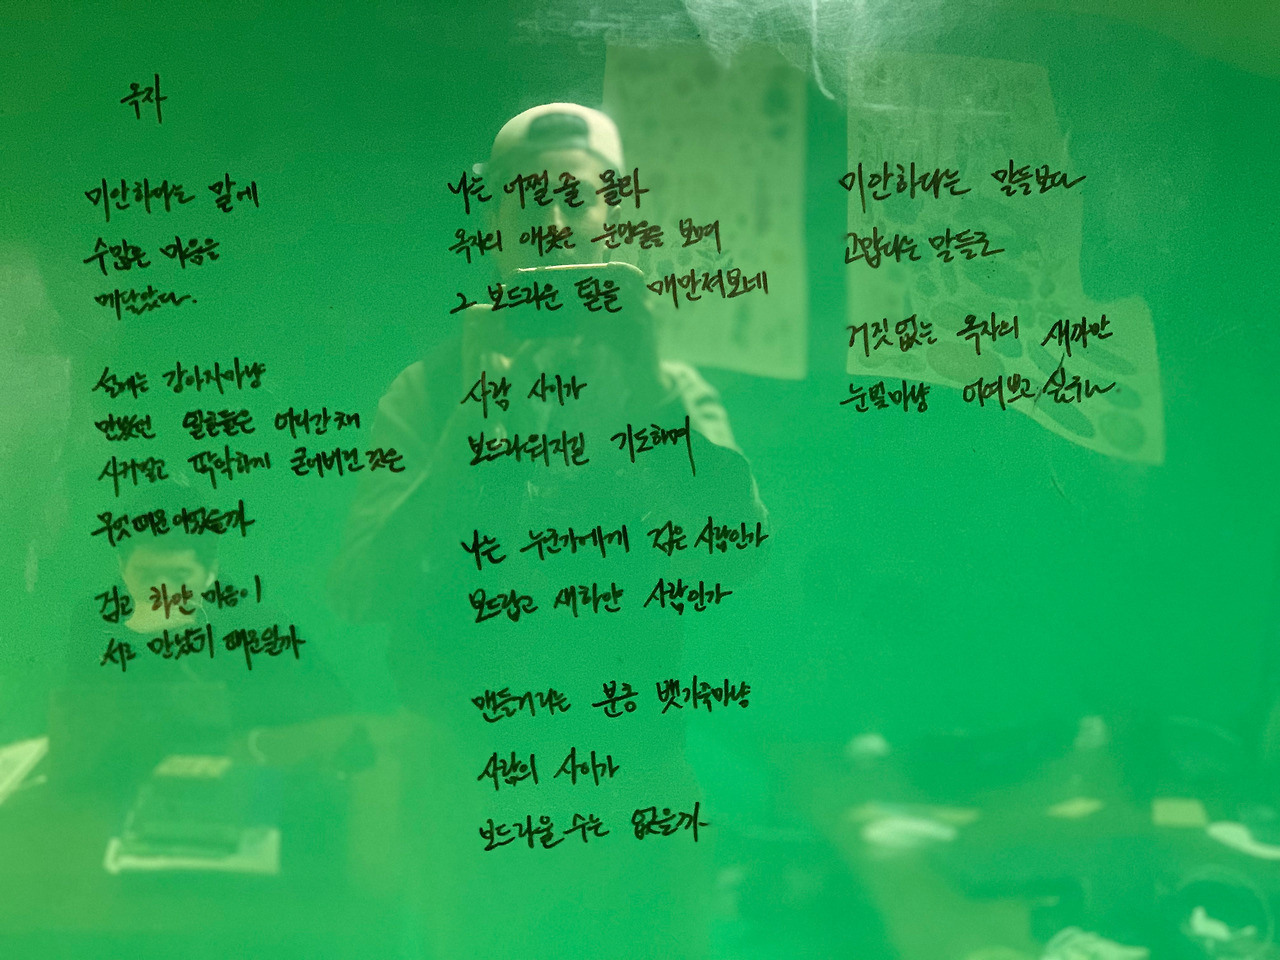 옥자
미안하다는 말에
수많은 마음을
매달았다.
설레는 강아지마냥
만났던 얼굴들은 어디간채
시커멓고 딱딱하게 굳어버린 것은
무엇 때문이었을까
검고 하얀 마음이
서로 만났기 때문일까
나는 어쩔 줄 몰라
옥자의 애꿎은 눈망울을 보며
그 보드라운 털을 매만져보네
사람 사이가
보드라워지길 기도하며
나는 누군가에게 검은 사람인가
보드랍고 새하얀 사람인가
맨들거리는 분홍 뱃가죽마냥
사람의 사이가
보드라울 수는 없을까
미안하다는 말들보다
고맙다는 말들로
거짓없는 옥자의 새까만
눈빛마냥 어여쁘고 싶구나